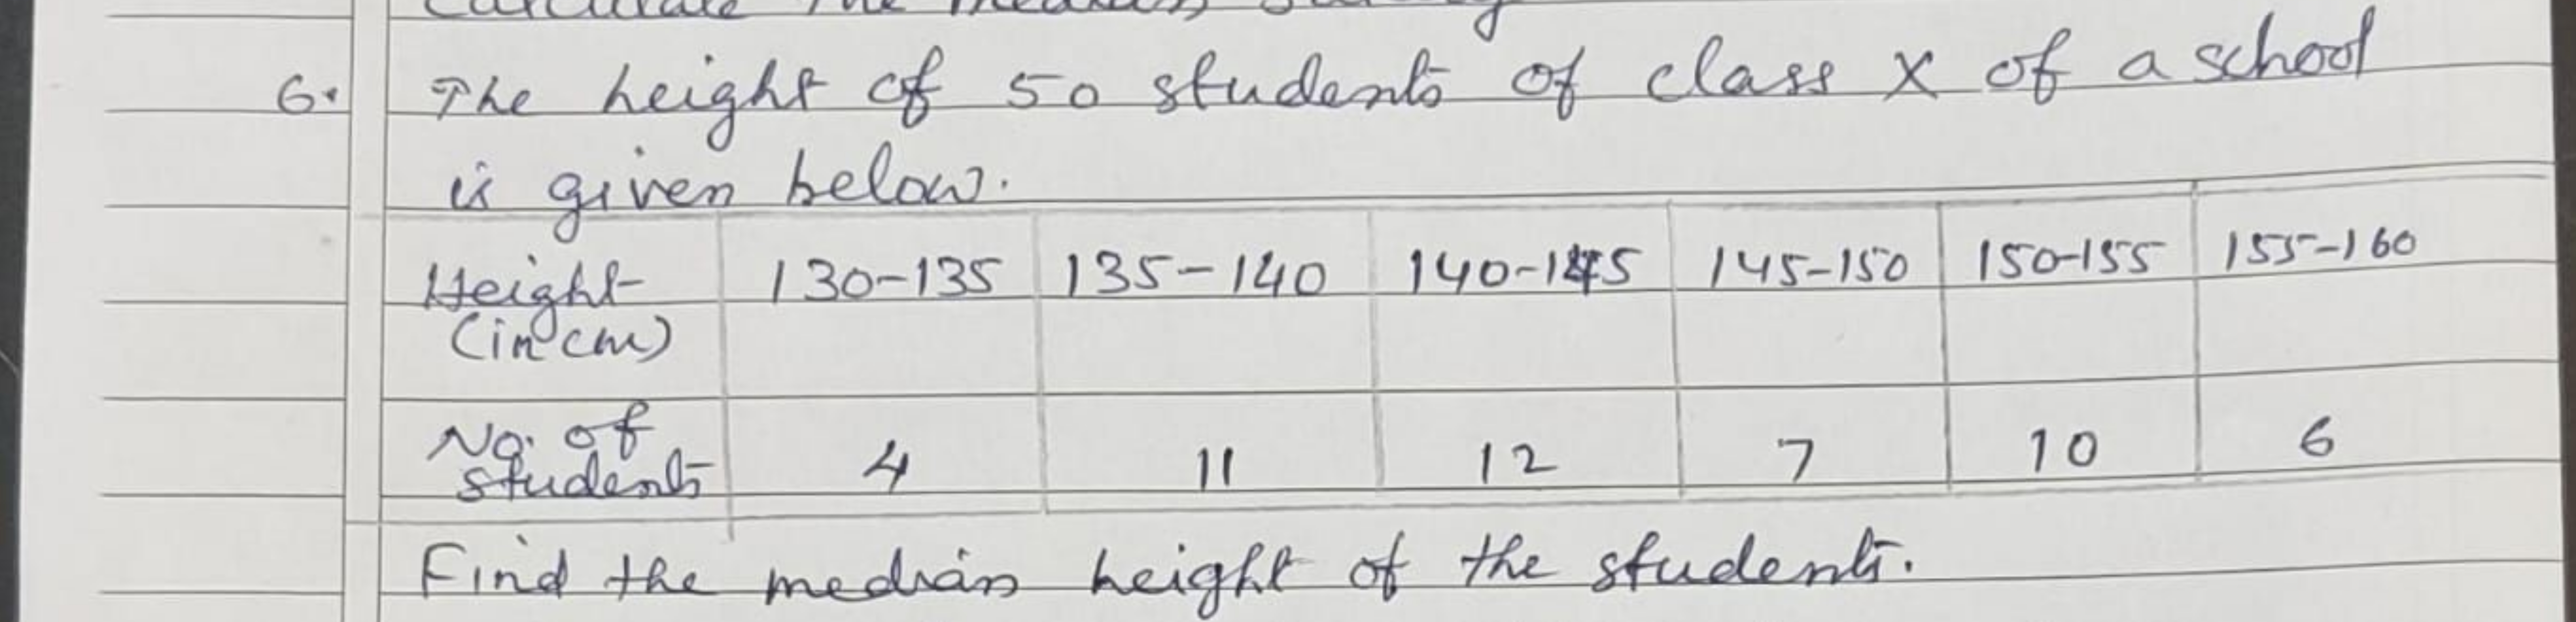 Calculate the median
6. The height of 50 students of class X of a school
is given below.
Height (in cm) 130-135 135-140 140-145 145-150 150-155 155-160
No. of students 4 11 12 7 10 6
Find the median height of the students.